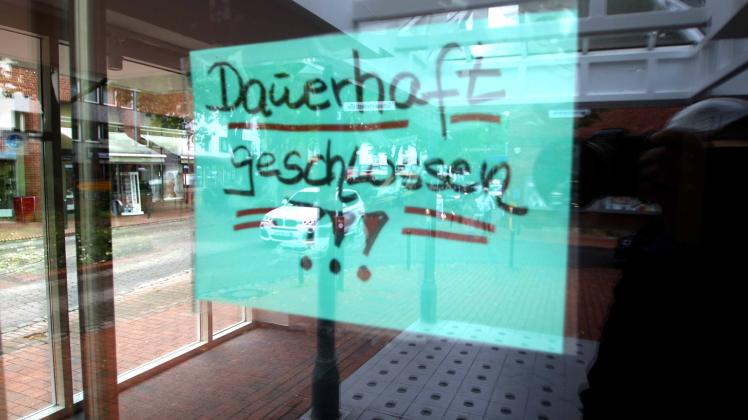 Dauerhaft
geschlossen
!!!